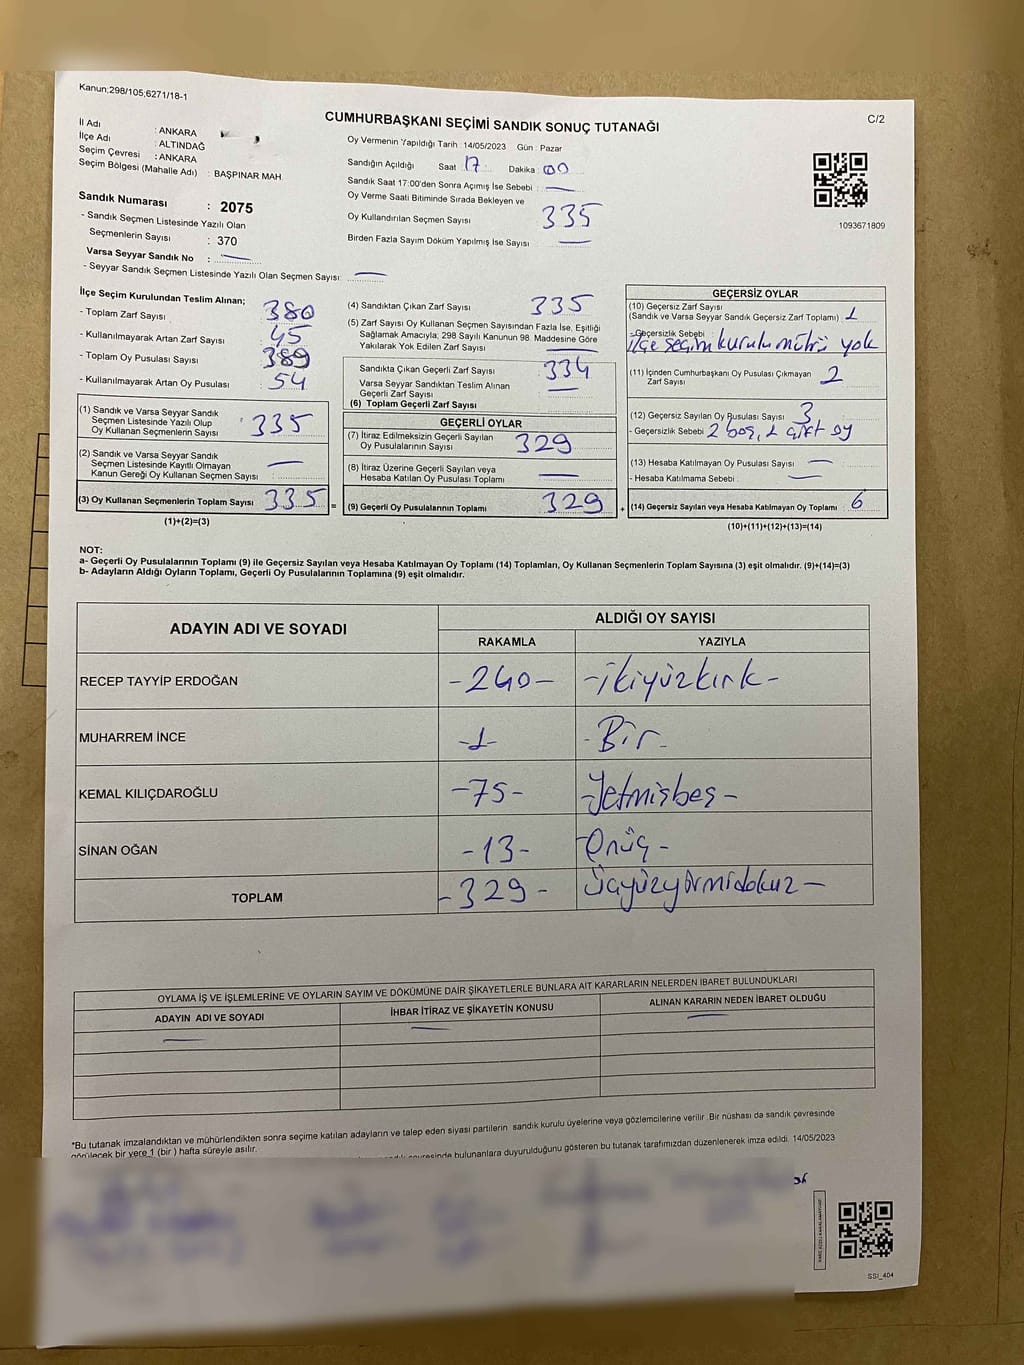 Kanun;298/105;6271/18-1
C/2
CUMHURBAŞKANI SEÇİMİ SANDIK SONUÇ TUTANAĞI
İl Adı : ANKARA
İlçe Adı : ALTINDAĞ
Seçim Çevresi : ANKARA
Seçim Bölgesi (Mahalle Adı) : BAŞPINAR MAH.
Sandık Numarası : 2075
- Sandık Seçmen Listesinde Yazılı Olan
Seçmenlerin Sayısı : 370
Varsa Seyyar Sandık No :
- Seyyar Sandık Seçmen Listesinde Yazılı Olan Seçmen Sayısı:
Oy Vermenin Yapıldığı Tarih : 14/05/2023 Gün : Pazar
Sandığın Açıldığı Saat 17 Dakika 00
Sandık Saat 17:00'den Sonra Açımış İse Sebebi :
Oy Verme Saati Bitiminde Sırada Bekleyen ve
Oy Kullandırılan Seçmen Sayısı 335
Birden Fazla Sayım Döküm Yapılmış İse Sayısı
1093671809
İlçe Seçim Kurulundan Teslim Alınan;
- Toplam Zarf Sayısı : 380
- Kullanılmayarak Artan Zarf Sayısı : 45
- Toplam Oy Pusulası Sayısı : 389
- Kullanılmayarak Artan Oy Pusulası : 54
(1) Sandık ve Varsa Seyyar Sandık
Seçmen Listesinde Yazılı Olup
Oy Kullanan Seçmenlerin Sayısı : 335
(2) Sandık ve Varsa Seyyar Sandık
Seçmen Listesinde Kayıtlı Olmayan
Kanun Gereği Oy Kullanan Seçmen Sayısı :
(3) Oy Kullanan Seçmenlerin Toplam Sayısı 335 =
(1)+(2)=(3)
(4) Sandıktan Çıkan Zarf Sayısı 335
(5) Zarf Sayısı Oy Kullanan Seçmen Sayısından Fazla İse, Eşitliği
Sağlamak Amacıyla, 298 Sayılı Kanunun 98. Maddesine Göre
Yakılarak Yok Edilen Zarf Sayısı
Sandıkta Çıkan Geçerli Zarf Sayısı 334
Varsa Seyyar Sandıktan Teslim Alınan
Geçerli Zarf Sayısı
(6) Toplam Geçerli Zarf Sayısı
GEÇERLİ OYLAR
(7) İtiraz Edilmeksizin Geçerli Sayılan
Oy Pusulasının Sayısı 329
(8) İtiraz Üzerine Geçerli Sayılan veya
Hesaba Katılan Oy Pusulası Toplamı
(9) Geçerli Oy Pusulalarının Toplamı 329 +
GEÇERSİZ OYLAR
(10) Geçersiz Zarf Sayısı
(Sandık ve Varsa Seyyar Sandık Geçersiz Zarf Toplamı) 1
- Geçersizlik Sebebi :
ilçe seçim kurulu mührü yok
(11) İçinden Cumhurbaşkanı Oy Pusulası Çıkmayan
Zarf Sayısı 2
(12) Geçersiz Sayılan Oy Pusulası Sayısı 3
- Geçersizlik Sebebi 2 boş, 1 çift oy
(13) Hesaba Katılmayan Oy Pusulası Sayısı
- Hesaba Katılmama Sebebi :
(14) Geçersiz Sayılan veya Hesaba Katılmayan Oy Toplamı 6
(10)+(11)+(12)+(13)=(14)
NOT:
a- Geçerli Oy Pusulalarının Toplamı (9) ile Geçersiz Sayılan veya Hesaba Katılmayan Oy Toplamı (14) Toplamları, Oy Kullanan Seçmenlerin Toplam Sayısına (3) eşit olmalıdır. (9)+(14)=(3)
b- Adayların Aldığı Oyların Toplamı, Geçerli Oy Pusulalarının Toplamına (9) eşit olmalıdır.
ADAYIN ADI VE SOYADI ALDIĞI OY SAYISI
RAKAMLA YAZIYLA
RECEP TAYYİP ERDOĞAN -240- -ikiyüzkırk-
MUHARREM İNCE -1- -Bir-
KEMAL KILIÇDAROĞLU -75- -Yetmişbeş-
SİNAN OĞAN -13- -Onüç-
TOPLAM -329- Üçyüzyirmidokuz-
OYLAMA İŞ VE İŞLEMLERİNE VE OYLARIN SAYIM VE DÖKÜMÜNE DAİR ŞİKAYETLERLE BUNLARA AİT KARARLARIN NELERDEN İBARET BULUNDUKLARI
ADAYIN ADI VE SOYADI İHBAR İTİRAZ VE ŞİKAYETİN KONUSU ALINAN KARARIN NEDEN İBARET OLDUĞU
*Bu tutanak imzalandıktan ve mühürlendikten sonra seçime katılan adayların ve talep eden siyasi partilerin sandık kurulu üyelerine veya gözlemcilerine verilir. Bir nüshası da sandık çevresinde
görülecek bir yere 1 (bir) hafta süreyle asılır.
bulunanlara duyurulduğunu gösteren bu tutanak tarafımızdan düzenlenerek imza edildi. 14/05/2023
SSI_404